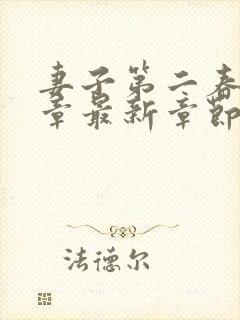 妻子第二春
章最新章节
法德尔